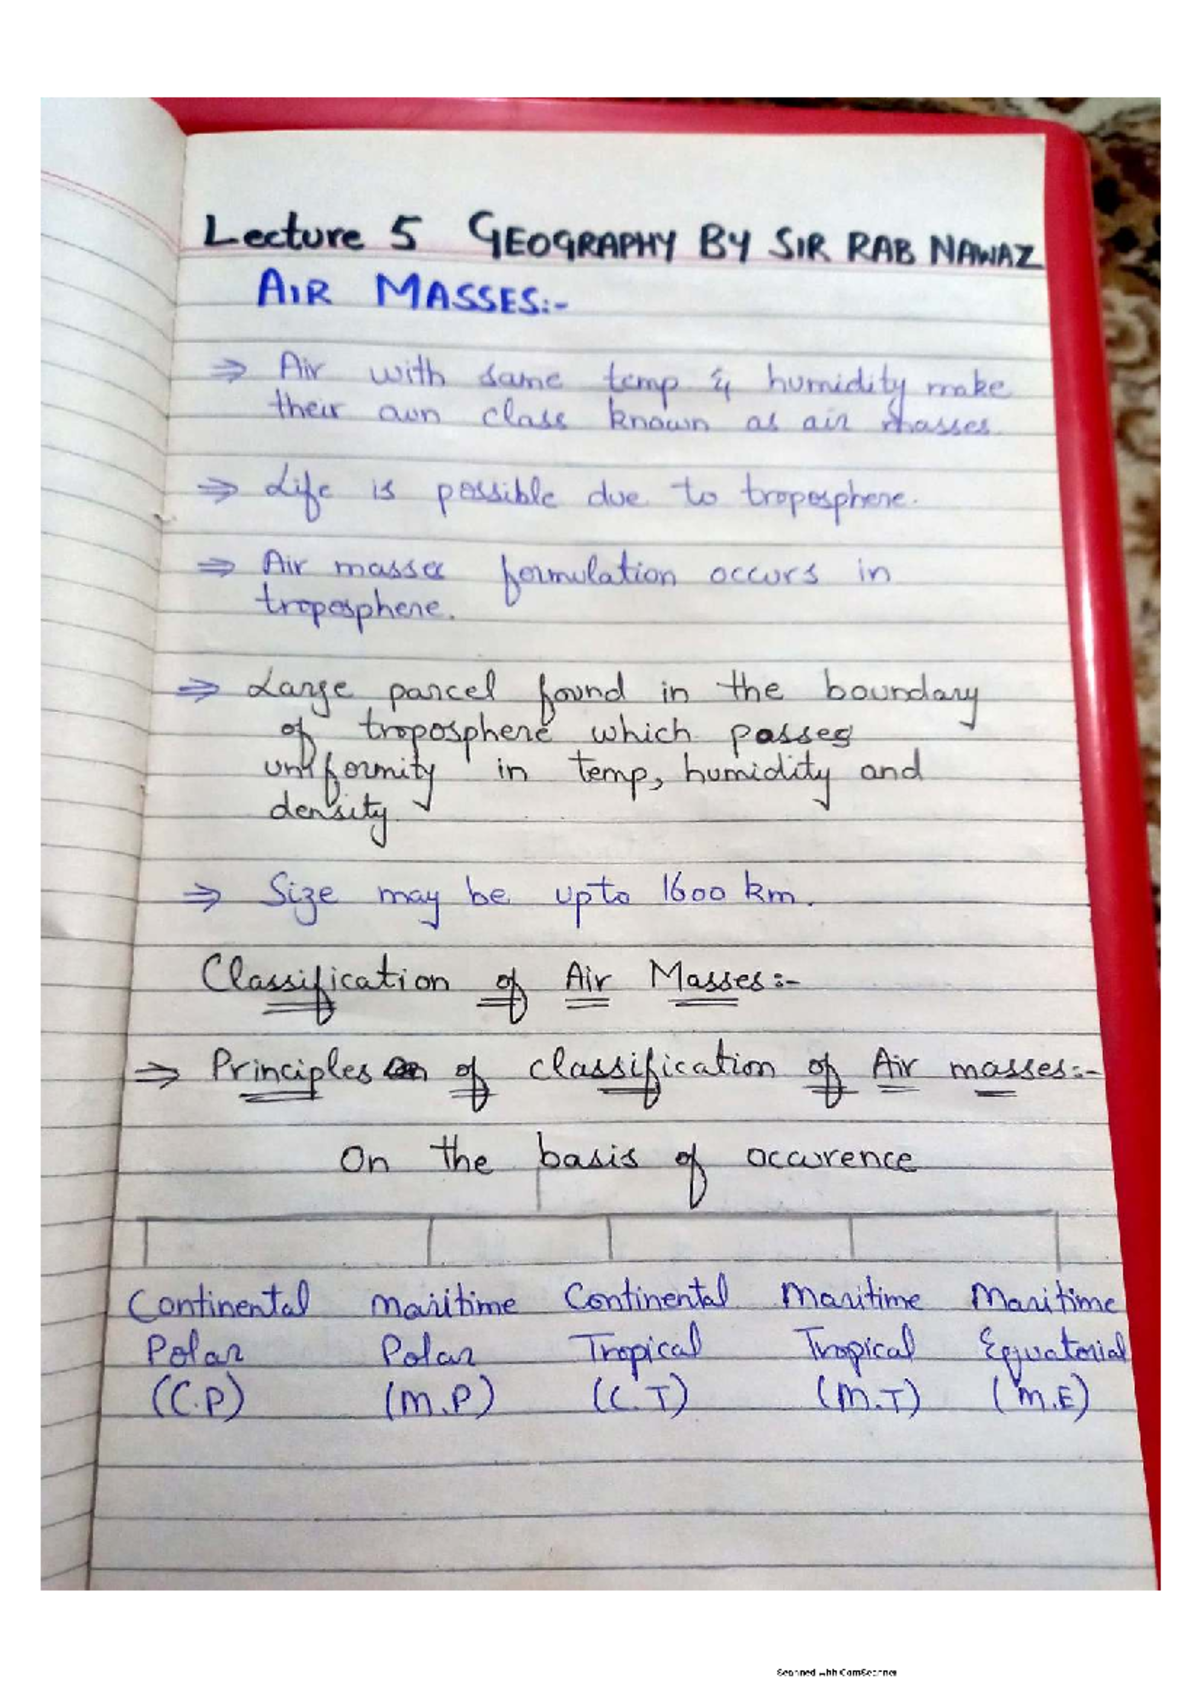 Lecture 5 GEOGRAPHY BY SIR RAB NAWAZ
AIR MASSES:-
⇒ Air with same temp & humidity make
their own class known as air masses.
⇒ Life is possible due to troposphere.
⇒ Air masses formulation occurs in
troposphere.
⇒ Large parcel found in the boundary
of troposphere which passes
uniformity in temp, humidity and
density.
⇒ Size may be upto 1600 km.
Classification of Air Masses:-
⇒ Principles of classification of Air masses:-
On the basis of occurence
Continental Maritime Continental Maritime Maritime
Polar Polar Tropical Tropical Equatorial
(C.P) (M.P) (C.T) (M.T) (M.E)
Scanned with CamScanner